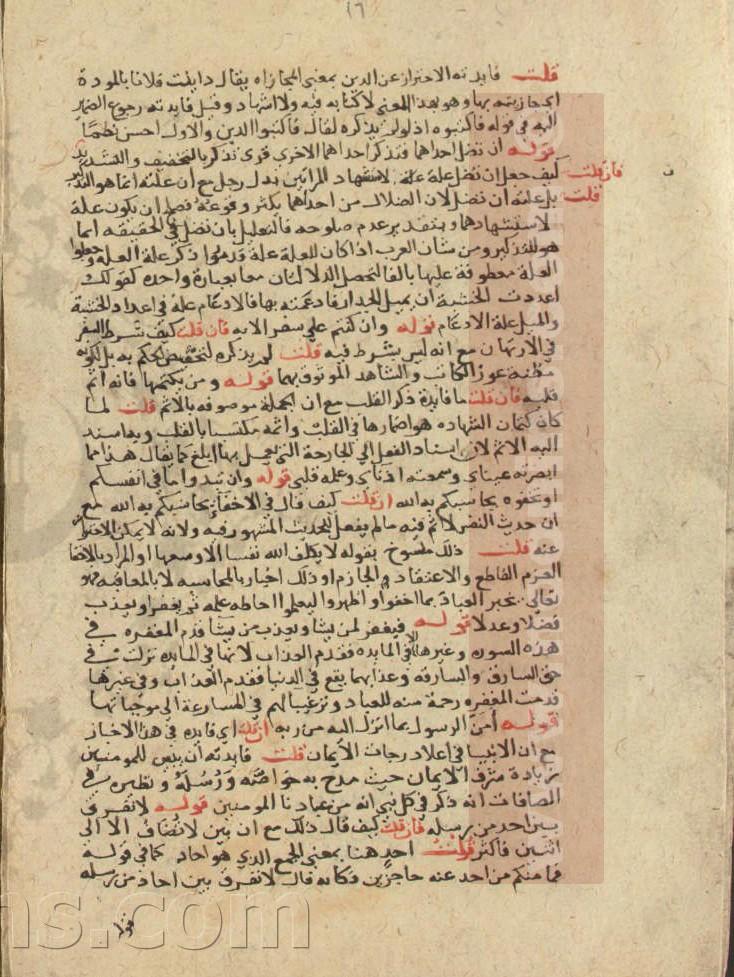 ١٦
قلت فايدته الاحتراز عن الدين بمعنى المجازاه يقال داينت فلانا بالمودة
اي جازيته بها وهو بهذا المعنى لا كتابه فيه ولا اشهاد وقيل فايدته رجوع الضمير
اليه في قوله فاكتبوه اذ لو لم يذكره لقال فاكتبوا الدين والاول احسن نظما
قوله أن تضل احداهما فتذكر احداهما الاخرى قرى تذكر بالتخفيف والتشديد
فان قلت كيف جعل ان تضل علة لاستشهاد المراتين بدل رجل مع أن علته انما هو التذكير
قلت بل علته أن تضل لان الضلال من احداهما يكثر وقوعه فصلح ان يكون علة
لاستشهادهما وبتقدير عدم صلوحه فالتعليل بان تضل في الحقيقه انما
هو للتذكير ومن شان العرب اذا كان للعلة علة قدموا ذكر علة العلة وجعلوا
العلة معطوفة عليها بالفا لتحصل الدلالتان معا بعبارة واحده كقولك
اعددت الخشبة أن يميل الجدار فادعمته بها فالادعام علة في اعداد الخشبة
والميل علة الادعام قوله وان كنتم على سفر الايه فان قلت كيف شرط السفر
في الارتهان مع انه ليس بشرط فيه قلت لم يذكره لتخصيص الحكم به بل لكونه
مظنة عوز الكاتب والشاهد الموثوق بهما قوله ومن يكتمها فانه اثم
قلبه فان قلت ما فايدة ذكر القلب مع ان الجملة موصوفه بالاثم قلت لما
كان كتمان الشهاده هو اضمارها في القلب واثمه مكتسبا بالقلب وبه اسند
اليه الاثم لان اسناد الفعل الى الجارحة التي يعمل بها ابلغ كما يقال هذا مما
ابصرته عيناي وسمعته اذناي وعلمه قلبي قوله وان تبدوا ما في انفسكم
او تخفوه يحاسبكم به الله ان قلت كيف قال في الاخفا يحاسبكم به الله مع
ان حديث النفس لا اثم فيه ما لم يفعل للحديث المشهور فيه ولانه لا يمكن الاحتراز
عنه قلت ذلك منسوخ بقوله لا يكلف الله نفسا الا وسعها او المراد بالاخفا
العزم القاطع والاعتقاد الجازم او ذلك اخبار بالمحاسبه لا بالمعاقبه فهو
تعالى يخبر العباد بما اخفوا او اظهروا ليعلموا احاطه علمه ثم يغفر او يعذب
فضلا وعدلا قوله فيغفر لمن يشا ويعذب من يشا قدم المغفره في
هذه السوره وغيرها الا في المايده فقدم العذاب لانها في المايده نزلت في
حق السارق والسارقه وعذابهما يقع في الدنيا فقدم العذاب وفي غيرها
قدمت المغفره رحمة منه للعباد وترغيبا لهم في المسارعة الى موجباتها
قوله أمن الرسول بما انزل اليه من ربه ان قلت اي فايده في هذا الاخبار
مع ان الانبيا في اعلا درجات الايمان قلت فايدته أن يبين للمومنين
زيادة شرف الايمان حيث مدح به خواصه ورسله ونظيره في
الصافات انه ذكر في كل نبي انه من عبادنا المومنين قوله لا نفرق
بين احد من رسله فان قلت كيف قال ذلك مع ان بين لا تضاف الا الى
اثنين فاكثر قلت احد هنا بمعنى الجمع الذي هو احاد كما في قوله
فما منكم من احد عنه حاجزين فكانه قال لا نفرق بين احاد من رسله
ns.com